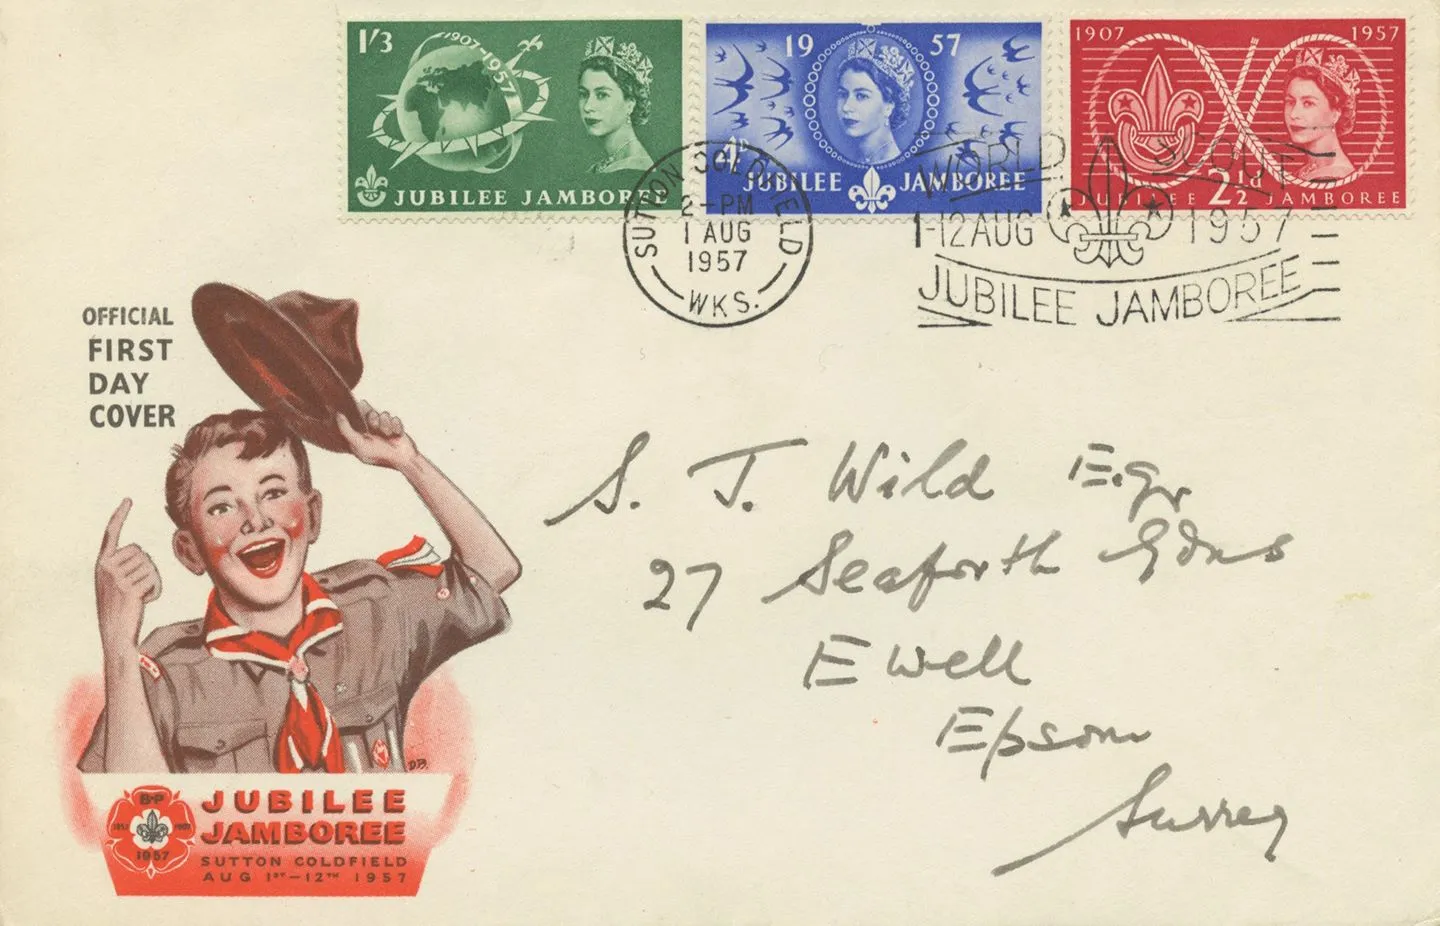 1'3
1907-1957
JUBILEE JAMBOREE
19 57
4D
JUBILEE JAMBOREE
1907 1957
JUBILEE 2½d JAMBOREE
SUTTON COLDFIELD
2-PM
1 AUG
1957
WKS.
WORLD SCOUT
1-12 AUG 1957
JUBILEE JAMBOREE
OFFICIAL
FIRST
DAY
COVER
S. T. Wild Esqr
27 Seaforth Gdns
Ewell
Epsom
Surrey
D.B.
B-P
1957
JUBILEE
JAMBOREE
SUTTON COLDFIELD
AUG 1ST-12TH 1957